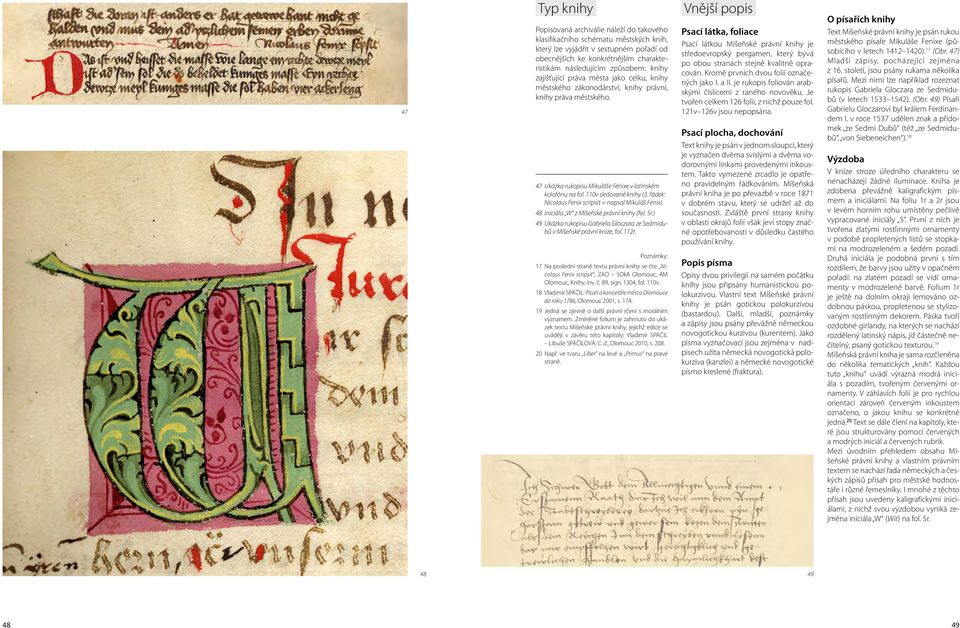 47
48
48
Typ knihy
Popisovaná archiválie náleží do takového
klasifikačního schématu městských knih,
který lze vyjádřit v sestupném pořadí od
obecnějších ke konkrétnějším charakte-
ristikám následujícím způsobem: knihy
zajišťující práva města jako celku, knihy
městského zákonodárství, knihy právní,
knihy práva městského.
47 Ukázka rukopisu Mikuláše Fénixe v latinském
kolofónu na fol. 110v sledované knihy (3. řádek:
Nicolaus Fenix scripsit = napsal Mikuláš Fenix).
48 Iniciála „W“ z Míšeňské právní knihy (fol. 5r.)
49 Ukázka rukopisu Gabriela Gloczara ze Sedmidu-
bů v Míšeňské právní knize, fol. 112r.
Poznámky:
17 Na poslední straně textu právní knihy se čte: „Ni-
colaus Fenix scripsit“; ZAO – SOkA Olomouc, AM
Olomouc, Knihy, inv. č. 89, sign. 1304, fol. 110v.
18 Vladimír SPÁČIL: Písaři a kanceláře města Olomouce
do roku 1786, Olomouc 2001, s. 174.
19 Jedná se zjevně o další právní rčení s morálním
významem. Zmíněné folium je zahrnuto do uká-
zek textu Míšeňské právní knihy, jejichž edice se
uvádějí v závěru této kapitoly; Vladimír SPÁČIL
– Libuše SPÁČILOVÁ: C. d., Olomouc 2010, s. 208.
20 Např. ve tvaru „Liber“ na levé a „Primus“ na pravé
straně.
Vnější popis
Psací látka, foliace
Psací látkou Míšeňské právní knihy je
středoevropský pergamen, který bývá
po obou stranách stejně kvalitně opra-
cován. Kromě prvních dvou folií označe-
ných jako I. a II. je rukopis foliován arab-
skými číslicemi z raného novověku. Je
tvořen celkem 126 folii, z nichž pouze fol.
121v–126v jsou nepopsána.
Psací plocha, dochování
Text knihy je psán v jednom sloupci, který
je vyznačen dvěma svislými a dvěma vo-
dorovnými linkami provedenými inkous-
tem. Takto vymezené zrcadlo je opatře-
no pravidelným řádkováním. Míšeňská
právní kniha je po převazbě v roce 1871
v dobrém stavu, který se udržel až do
současnosti. Zvláště první strany knihy
v oblasti okrajů folií však jeví stopy znač-
né opotřebovanosti v důsledku častého
používání knihy.
Popis písma
Opisy dvou privilegií na samém počátku
knihy jsou připsány humanistickou po-
lokurzivou. Vlastní text Míšeňské právní
knihy je psán gotickou polokurzivou
(bastardou). Další, mladší, poznámky
a zápisy jsou psány převážně německou
novogotickou kurzivou (kurentem). Jako
písma vyznačovací jsou zejména v nad-
pisech užita německá novogotická polo-
kurziva (kanzlei) a německé novogotické
písmo kreslené (fraktura).
49
O písařích knihy
Text Míšeňské právní knihy je psán rukou
městského písaře Mikuláše Fenixe (pů-
sobícího v letech 1412–1420).17 (Obr. 47)
Mladší zápisy, pocházející zejména
z 16. století, jsou psány rukama několika
písařů. Mezi nimi lze například rozeznat
rukopis Gabriela Gloczara ze Sedmidu-
bů (v letech 1533–1542). (Obr. 49) Písaři
Gabrielu Gloczarovi byl králem Ferdinan-
dem I. v roce 1537 udělen znak a přído-
mek „ze Sedmi Dubů“ (též „ze Sedmidu-
bů“, „von Siebeneichen“).18
Výzdoba
V knize stroze úředního charakteru se
nenacházejí žádné iluminace. Kniha je
zdobena převážně kaligrafickým pís-
mem a iniciálami. Na foliu 1r a 2r jsou
v levém horním rohu umístěny pečlivě
vypracované iniciály „S“. První z nich je
tvořena zlatými rostlinnými ornamenty
v podobě propletených listů se stopka-
mi na modrozeleném a šedém pozadí.
Druhá iniciála je podobná první s tím
rozdílem, že barvy jsou užity v opačném
pořadí: na zlatém pozadí se vidí orna-
menty v zelenomodré barvě. Folium 1r
je ještě na dolním okraji lemováno oz-
dobnou páskou, propletenou se stylizo-
vaným rostlinným dekorem. Páska tvoří
ozdobné girlandy, na kterých se nachází
německý rýmovaný nápis, již částečně ne-
čitelný, psaný gotickou texturou.19
Míšeňská právní kniha je sama rozčleněna
do několika tematických „knih“. Každou
tuto „knihu“ uvádí výrazná modrá inici-
ála s pozadím, tvořeným červenými or-
namenty. V záhlavích folií je pro rychlou
orientaci zároveň červeným inkoustem
označeno, o jakou knihu se konkrétně
jedná.20 Text se dále člení na kapitoly, kte-
ré jsou strukturovány pomocí červených
a modrých iniciál a červených rubrik.
Mezi úvodním přehledem obsahu Mí-
šeňské právní knihy a vlastním právním
textem se nachází řada německých a čes-
kých zápisů přísah pro městské hodnos-
táře i různé řemeslníky. I mnohé z těchto
přísah jsou uvedeny kaligrafickými inici-
álami, z nichž svou výzdobou vyniká ze-
jména iniciála „W“ (Wir) na fol. 5r.
49